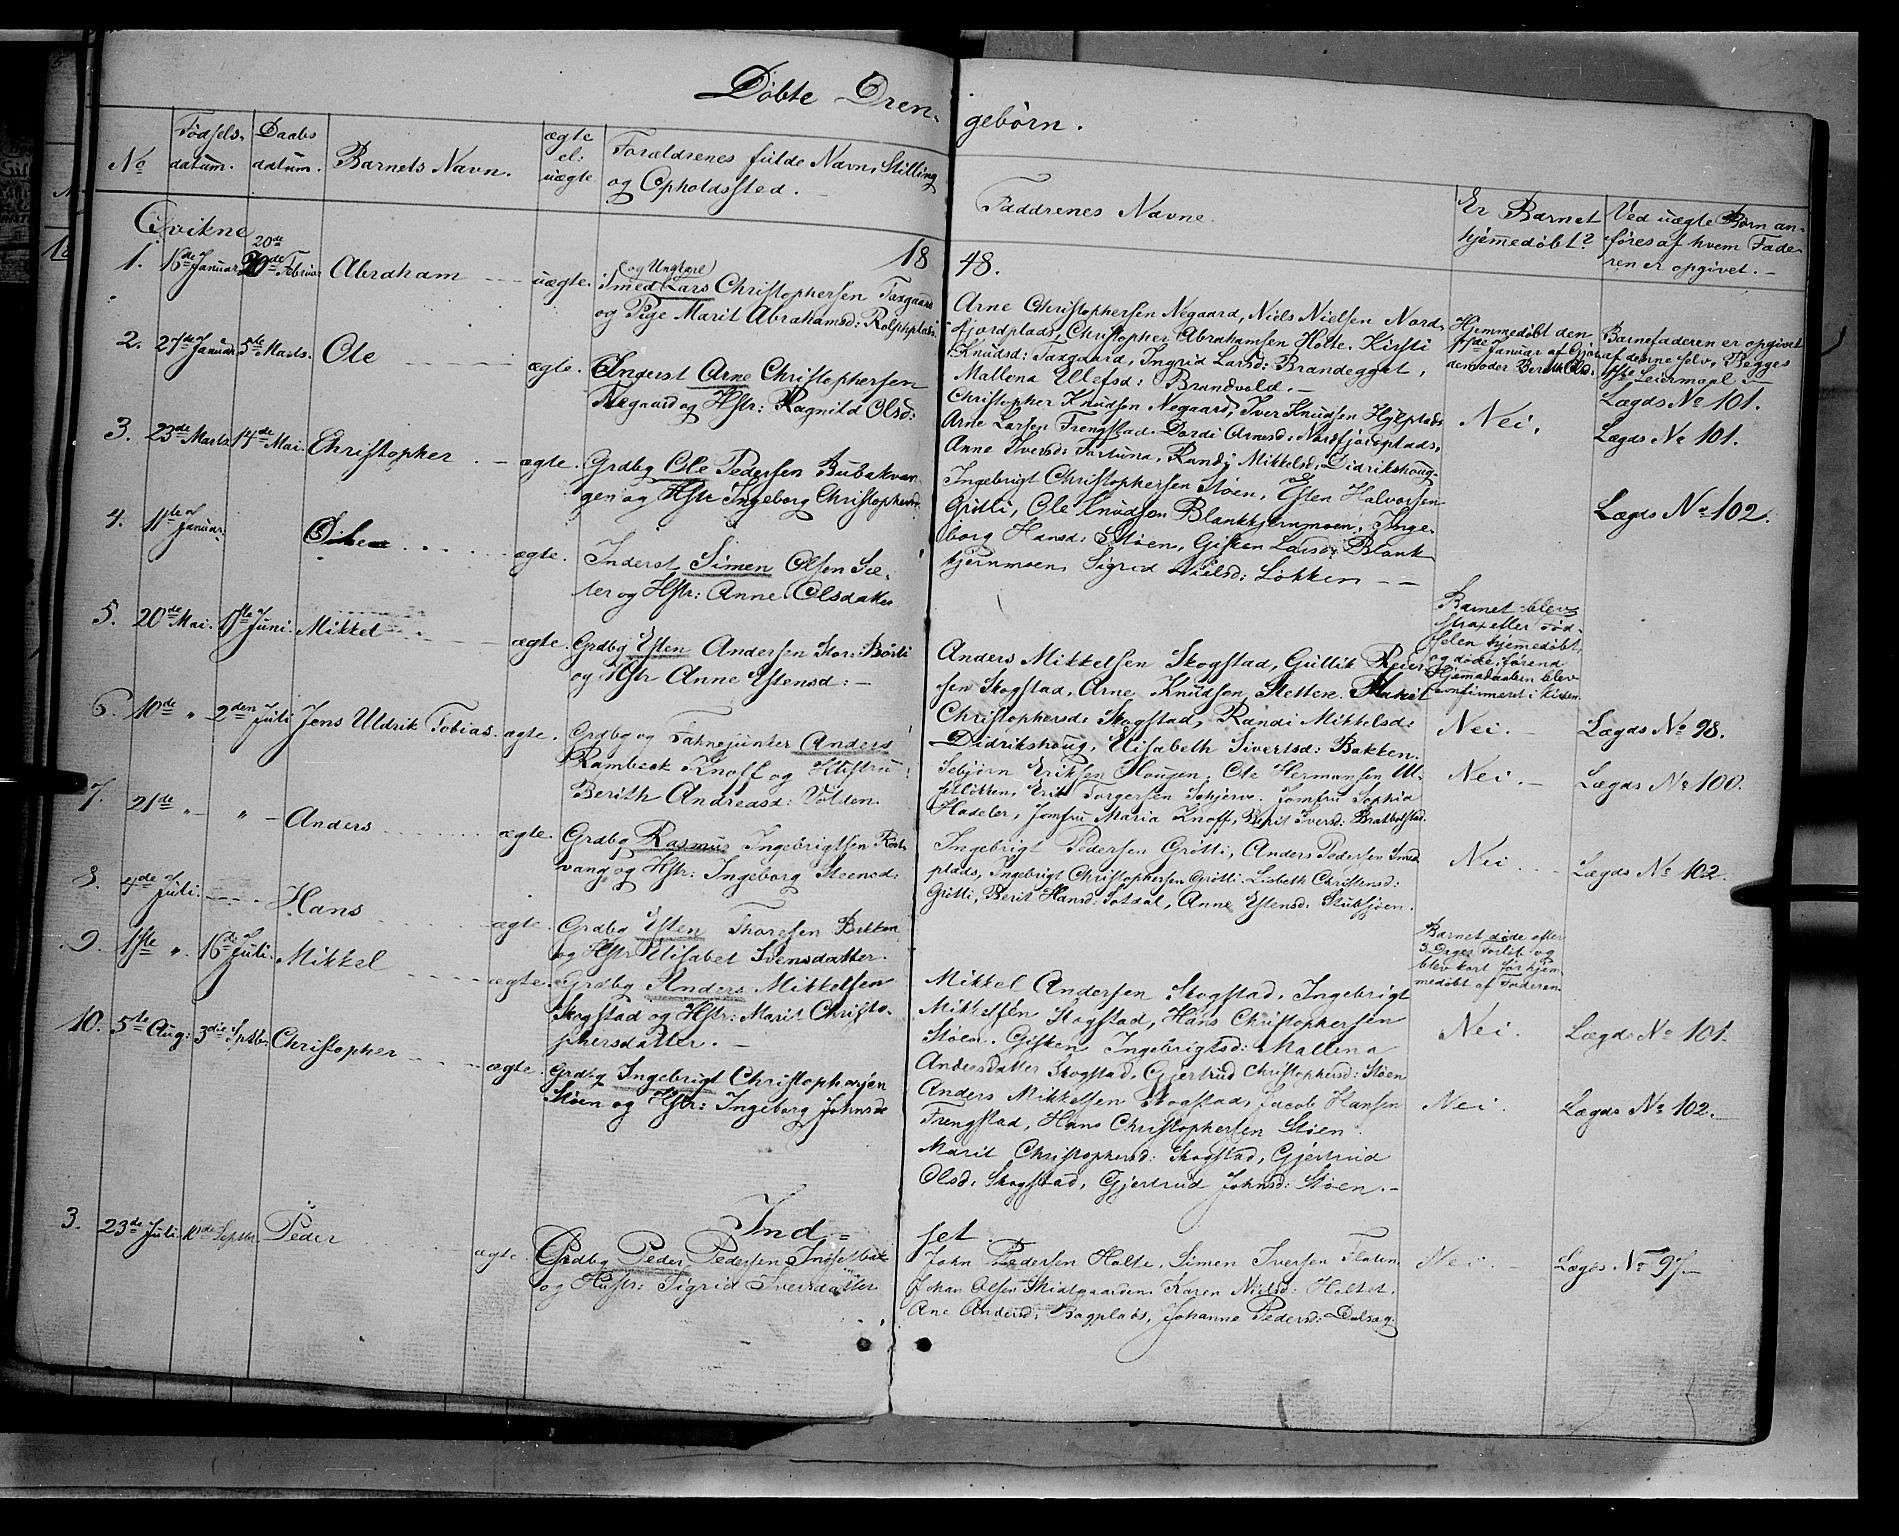 Døbte Dren-
gebørn.
No
Fødsels-
datum.
Daabs
datum.
Barnets Navn.
ægte
el.
uægte
Forældrenes fulde Navn, Stilling
og Opholdssted.
Faddrenes Navne.
Er Barnet
hjemmedøbt?
Ved uægte Børn an-
føres af hvem Fade-
ren er opgivet.
Qvikne
1848.
1. 16de Januar 20de Februar Abraham uægte. Smed (og Ungkarl) Lars Christophersen Taxgaard
og Pige Marit Abrahamsd: Rolphplads.
Arne Christophersen Negaard, Niels Nielsen Nord-
fjordplads, Christopher Abrahamsen Holte. Kirsti
Knudsd: Taxgaard, Ingrid Larsd: Brandegget,
Mallena Ulefsd: Brandvold.
Hjemmedøbt den
Januar af Gjor-
demoder Berith Olsd:
Barnefaderen er opgivet
af denne selv, Begges
1ste Leiermaal
Lægds No 101.
2. 27de Januar 5te Marts. Ole ægte. Inderst Arne Christophersen
Negaard og Hstr: Ragnild Olsd:
Christopher Knudsen Negaard, Iver Knudsen Hylplads
Arne Larsen Frengstad. Dordi Arnesd: Nordfjordplads,
Anne Iversd: Fortuna, Randi Mikkelsd: Didrikshoug
Nei.
Lægds No 101.
3. 23de Marts 14de Mai. Christopher ægte. Grdbg Ole Pedersen Bubakvan-
gen og Hstr Ingeborg Christophersd:
Ingebrigt Christophersen Støen, Esten Halvorsen
Grøtli, Ole Knudsen Blankkjernmoen, Inge-
borg Hansd: Støen, Gisken Larsd: Blank-
kjernmoen, Sigrid Nielsd: Løkken
Lægds No 102.
4. 11te Januar ægte. Inderst Simen Olsen Sæ-
ter og Hstr: Anne Olsdatter
Barnet blev
strax efter Fød-
selen hjemmedøbt,
og døde, førend
Hjemedaaben blev
confirmeret i Kirken
5. 20de Mai. Juni. Mikkel ægte. Grdbg Esten Andersen Stor-Børli
og Hstr Anne Estensd:
Anders Mikkelsen Skogstad, Gullik Reier-
sen Skogstad, Arne Knudsen Stettene. Marit
Christophersd: Skogstad, Randi Mikkelsd:
Didrikshoug, Elisabeth Sivertsd: Bakken.
Nei.
Lægds No 98.
6. 10de " 2den Juli Jens Uldrik Tobias. ægte. Grdbg og Fahnejunker Anders
Rambech Knoff og Hustru
Berith Andreasd: Volden.
Sebjørn Eriksen Hougen, Ole Hermansen Ut-
stløkken, Erik Torgersen Schjerve. Jomfru Sophia
Hadeler, Jomfru Maria Knoff, Berit Iversd: Bratbolstad.
Nei.
Lægds No 100.
7. 21de " " Anders ægte. Grdbg Rasmus Ingebrigtsen Kort-
vang og Hstr: Ingeborg Steensd:
Ingebrigt Pedersen Grøtli, Anders Pedersen Smed-
plads, Ingebrigt Christophersen Grøtli. Lisbeth Christensd:
Grøtli, Berit Hansd: Totdal, Anne Estensd: Stubsjøen.
Nei
Lægds No 102.
8. 4de Juli. Hans ægte. Grdbg Esten Thoresen Bakken
og Hstr Elisabet Svensdatter.
Barnet døde efter
3 Dages Forløb og
blev kort før hjem-
medøbt af Faderen.
9. 1ste " 16de Juli. Mikkel ægte. Grdbg Anders Mikkelsen
Skogstad og Hstr: Marit Christo-
phersdatter.
Mikkel Andersen Skogstad, Ingebrigt
Mikkelsen Skogstad, Hans Christophersen
Støen. Gisken Ingebrigtsd: Mallena
Andersdatter Skogstad, Gjertrud Christophersd: Støen
Nei.
Lægds No 101.
10. 5te Aug: 3die Septbr. Christopher ægte. Grdbg Ingebrigt Christophersen
Støen og Hstr: Ingeborg Johnsd:
Anders Mikkelsen Skogstad, Jacob Hansen
Frengstad, Hans Christophersen Støen.
Marit Christophersd: Skogstad, Gjertrud
Olsd: Skogstad, Gjertrud Johnsd: Støen.
Nei.
Lægds No 102.
Ind-
set.
3. 23de Juli 10de Septbr. Peder ægte Grdbg Peder Pedersen Indsetbak
og Hustr: Sigrid Iversdatter
John Pedersen Holte, Simen Iversen Floten
Johan Olsen Midtgaarden. Karen Nielsd: Holtet,
Ane Andersd: Bagplads, Johanne Pedersd: Dalsæg.
Nei.
Lægds No 97.